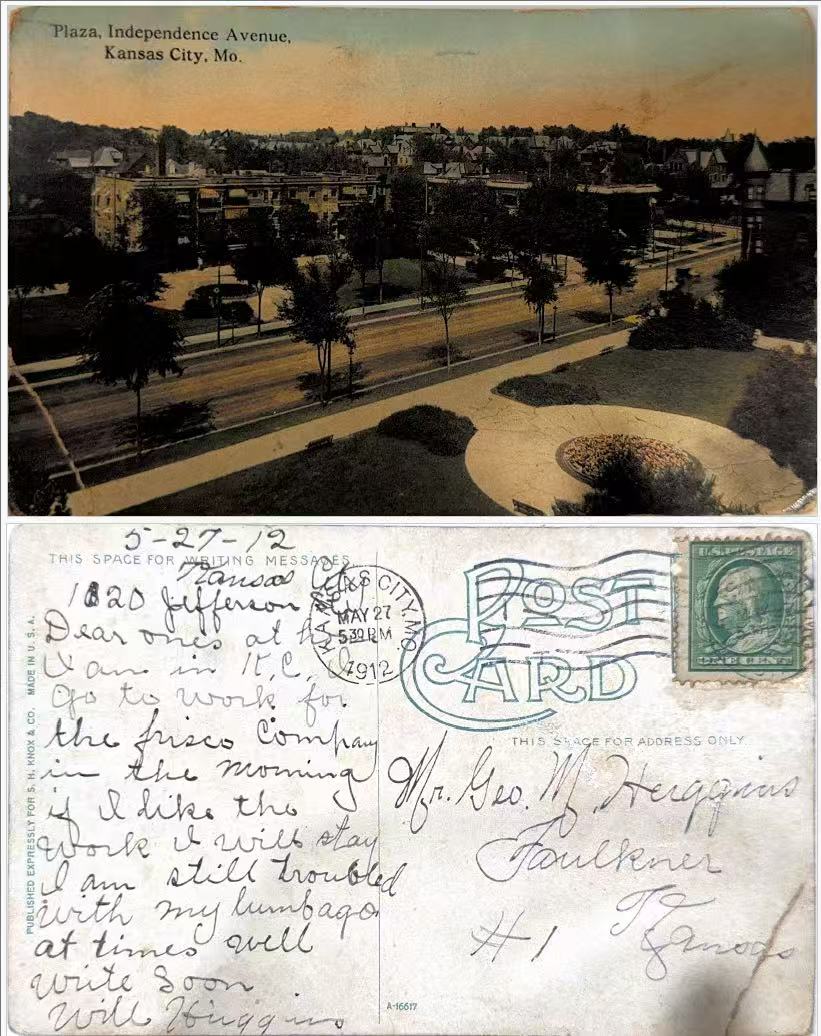 Plaza, Independence Avenue,
Kansas City, Mo.
5-27-12
THIS SPACE FOR WRITING MESSAGES
Kansas City
1820 Jefferson
Dear ones at
I am in K.C., I
go to work for
the frisco Company
in the morning
if I like the
work I will stay
I am still troubled
with my lumbago
at times well
write soon
Will Huggins
PUBLISHED EXPRESSLY FOR S. H. KNOX & CO. MADE IN U.S.A.
KANSAS CITY, MO.
MAY 27
530 PM
1912
POST
CARD
U.S. POSTAGE
ONE CENT
THIS SPACE FOR ADDRESS ONLY.
Mr. Geo. M. Huggins
Faulkner
#1 Kansas
A-16617